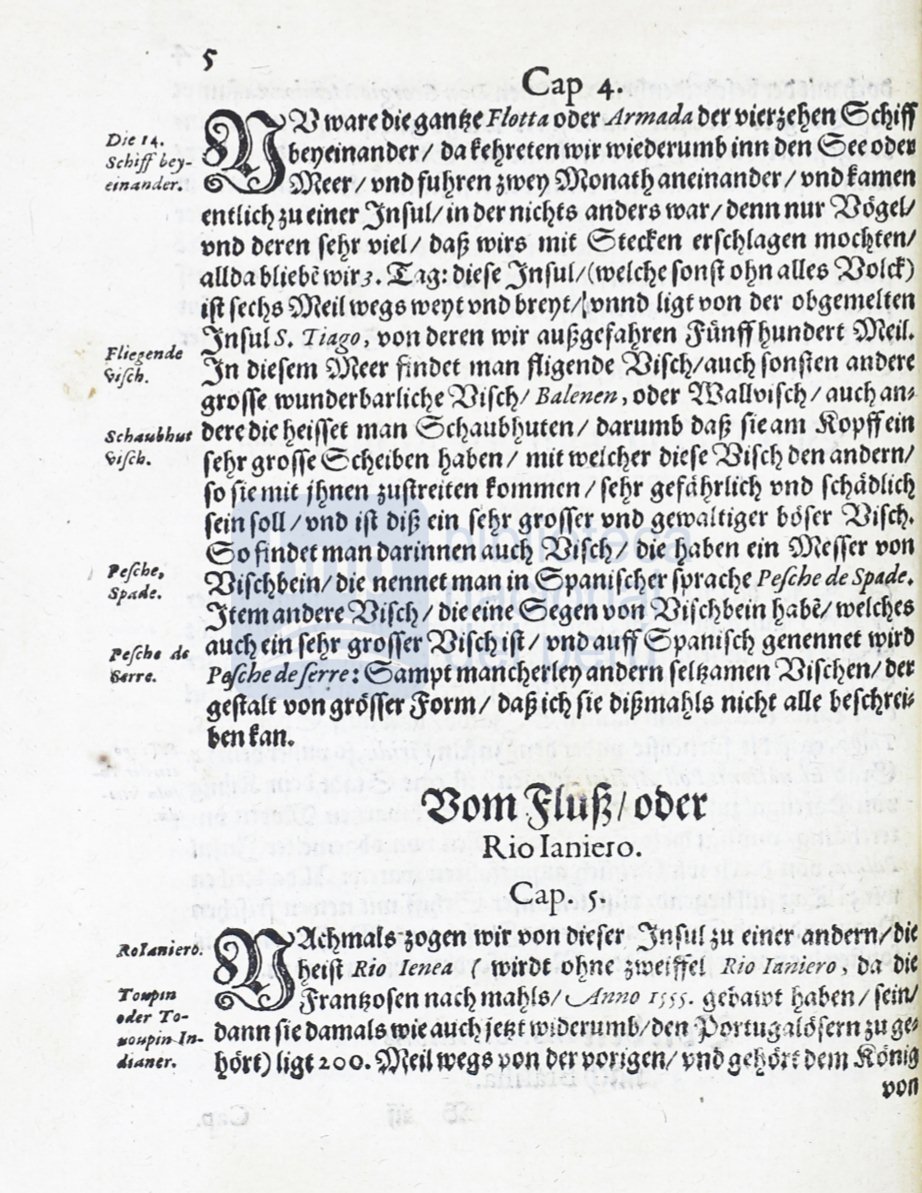 5
Cap 4.
Die 14.
Schiff bey-
einander.
NV ware die gantze Flotta oder Armada der vierzehen Schiff
beyeinander / da kehreten wir wiederumb inn den See oder
Meer / vnd fuhren zwey Monath aneinander / vnd kamen
entlich zu einer Insul / in der nichts anders war / denn nur Vögel /
vnd deren sehr viel / daß wirs mit Stecken erschlagen mochten /
allda bliebē wir 3. Tag: diese Insul / (welche sonst ohn alles Volck)
ist sechs Meil wegs weyt vnd breyt / vnnd ligt von der obgemelten
Insul S. Tiago, von deren wir außgefahren Fünff hundert Meil.
Fliegende
Visch.
In diesem Meer findet man fligende Visch / auch sonsten andere
grosse wunderbarliche Visch / Balenen, oder Wallvisch / auch an-
Schaubhut
Visch.
dere die heisset man Schaubhuten / darumb daß sie am Kopff ein
sehr grosse Scheiben haben / mit welcher diese Visch den andern /
so sie mit jhnen zustreiten kommen / sehr gefährlich vnd schädlich
sein soll / vnd ist diß ein sehr grosser vnd gewaltiger böser Visch.
So findet man darinnen auch Visch / die haben ein Messer von
Pesche,
Spade.
Vischbein / die nennet man in Spanischer sprache Pesche de Spade.
Item andere Visch / die eine Segen von Vischbein habē / welches
auch ein sehr grosser Visch ist / vnd auff Spanisch genennet wird
Pesche de
Serre.
Pesche de serre: Sampt mancherley andern seltzamen Vischen / der
gestalt von grösser Form / daß ich sie dißmahls nicht alle beschrei-
ben kan.
biblioteca
nacional
del perú
Vom Fluß / oder
Rio Ianiero.
Cap. 5.
Ro Ianiero.
NAchmals zogen wir von dieser Insul zu einer andern / die
heist Rio Ienea ( wirdt ohne zweiffel Rio Ianiero, da die
Toupin
oder To-
uoupin In-
dianer.
Frantzosen nach mahls / Anno 1555. gebawt haben / sein /
dann sie damals wie auch jetzt widerumb / den Portugalösern zu ge-
hört) ligt 200. Meil wegs von der vorigen / vnd gehört dem König
von